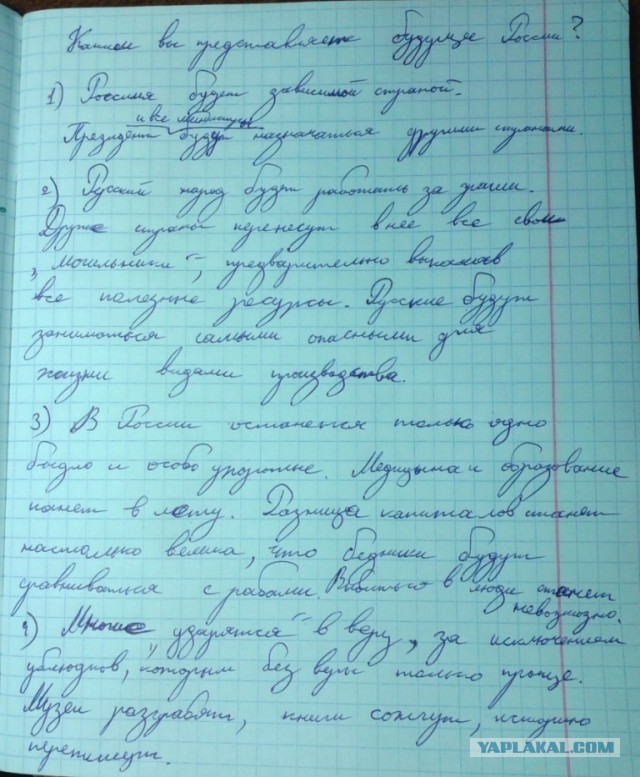 Каким вы представляете будущее России?
1) Россия будет зависимой страной.
и все министры
Президент будут назначаться другими странами.
2) Русский народ будет работать за гроши.
Другие страны перенесут в неё все свои
„могильники“, предварительно выкачав
все полезные ресурсы. Русские будут
заниматься самыми опасными для
жизни видами производства.
3) В России останется только одно
быдло и особо упоротые. Медицина и образование
канет в лету. Разница капиталов станет
настолько велика, что бедняки будут
сравниваться с рабами. Выбиться в люди станет
невозможно.
4) Многие ударятся в веру, за исключением
ублюдков, которым без веры только проще.
Музеи разграбят, книги сожгут, историю
перепишут.
YAPLAKAL.COM